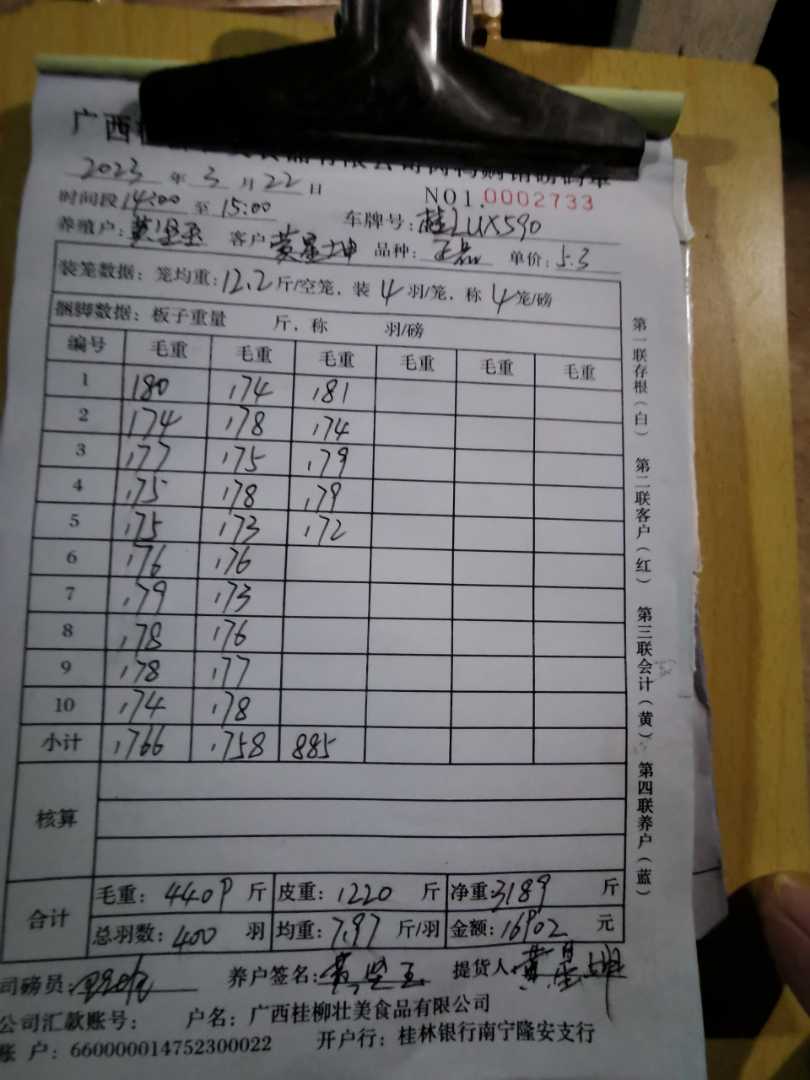 广西
2023 年 3 月 22 日
NO1.0002733
时间段 14:00 至 15:00 车牌号: 桂LUX590
养殖户: 黄坚玉 客户 黄星坤 品种: 正品 单价: 5.3
装笼数据: 笼均重: 12.2 斤/空笼, 装 4 羽/笼, 称 4 笼/磅
捆脚数据: 板子重量 斤, 称 羽/磅
编号 毛重 毛重 毛重 毛重 毛重 毛重
1 180 174 181
2 174 178 174
3 177 175 179
4 175 178 179
5 175 173 172
6 176 176
7 179 173
8 178 176
9 178 177
10 174 178
小计 1766 1758 885
核算
合计 毛重: 4409 斤 皮重: 1220 斤 净重: 3189 斤
总羽数: 400 羽 均重: 7.97 斤/羽 金额: 16902 元
司磅员: 养户签名: 黄坚玉 提货人: 黄星坤
公司汇款账号: 户名: 广西桂柳壮美食品有限公司
账 户: 660000014752300022 开户行: 桂林银行南宁隆安支行
第一联存根(白) 第二联客户(红) 第三联会计(黄) 第四联养户(蓝)